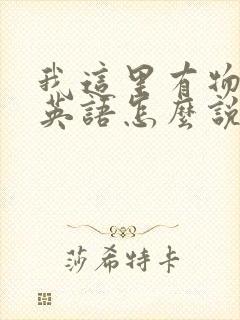 我這里有物
英語怎麼說
莎希特卡